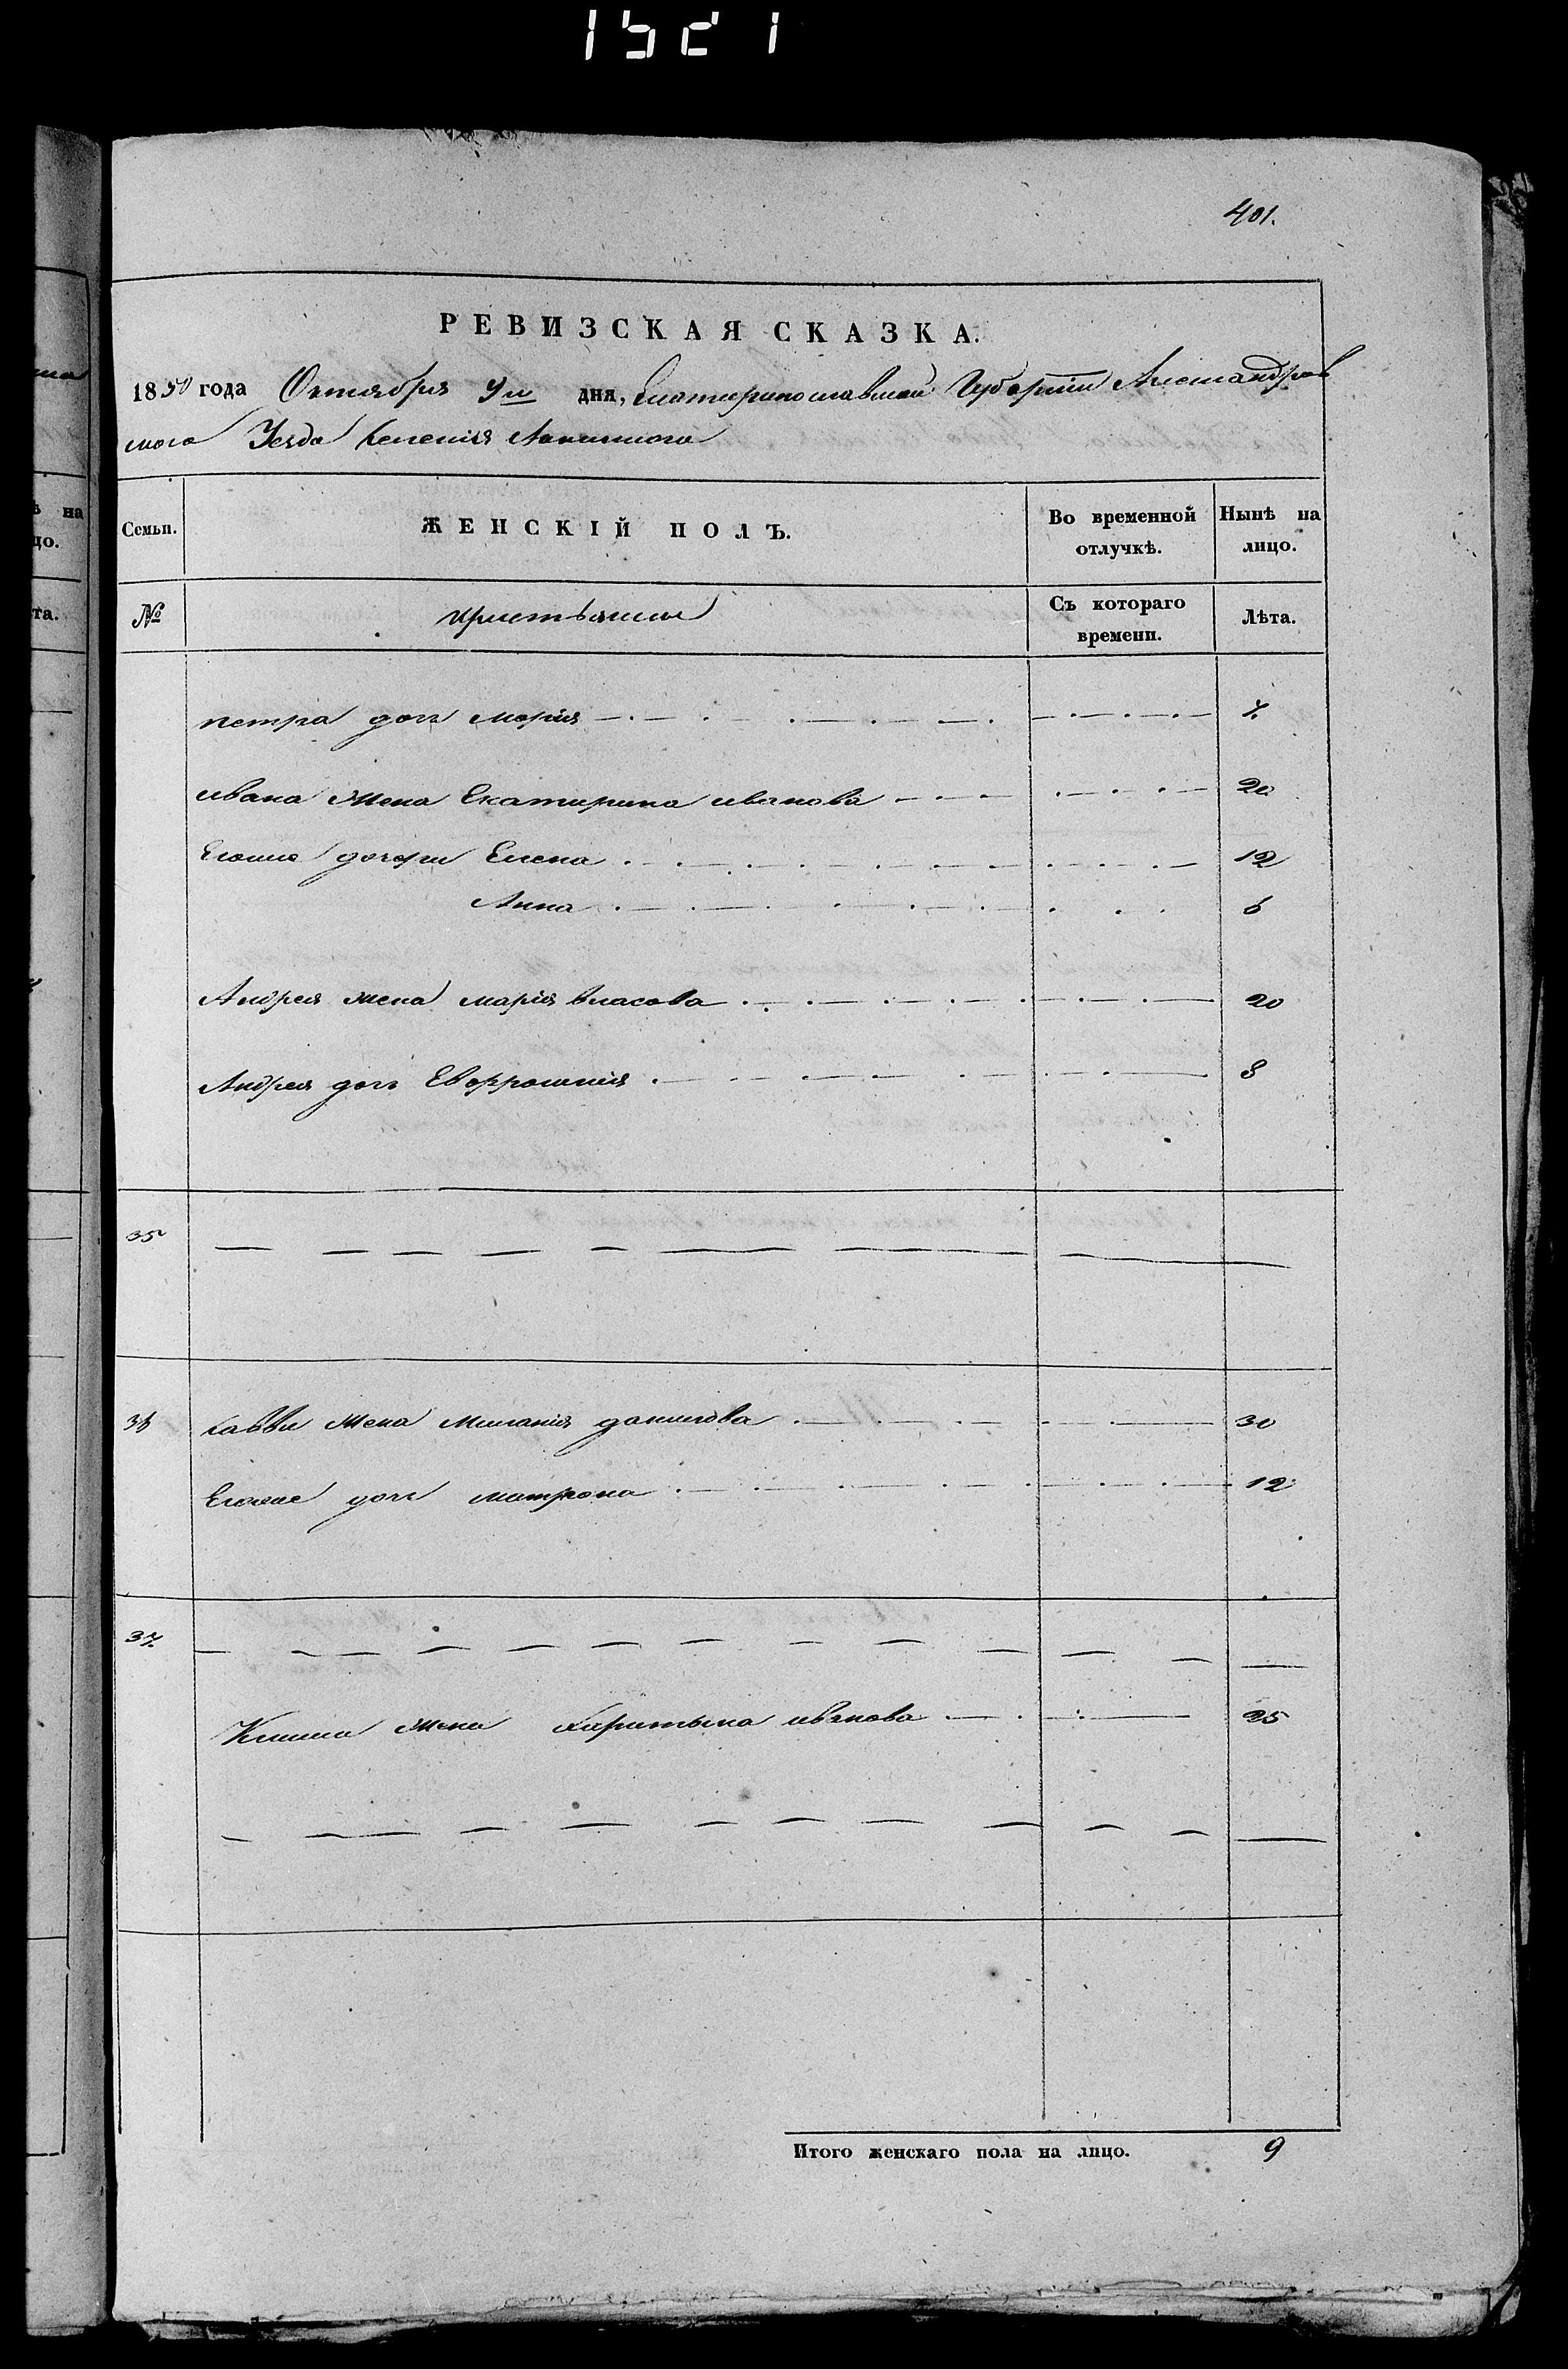 1521
401.
РЕВИЗСКАЯ СКАЗКА.
1850 года Октября 9го дня, Екатеринославской Губернiи Александров
ского Уезда Селенiя
Семьи. ЖЕНСКIЙ ПОЛЪ. Во временной отлучкѣ. Нынѣ на лицо.
№ Съ котораго времени. Лѣта.
петра дочь марiя 7.
ивана жена Екатирина иванова 20
Егоже дочери Елена 12
Анна 6
Андрея жена марiя власова 20
Андрея дочь 8
35
36 савви жена Миланiя данилова 30
Егоже дочь матрона 12
37.
Клима жена Харитына иванова 25
Итого женскаго пола на лицо. 9